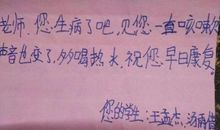 老师，您生病了吧，见您一直咳嗽，
声音也变了，多喝热水，祝您早日康复
您的学生：王孟杰，汤雨倩